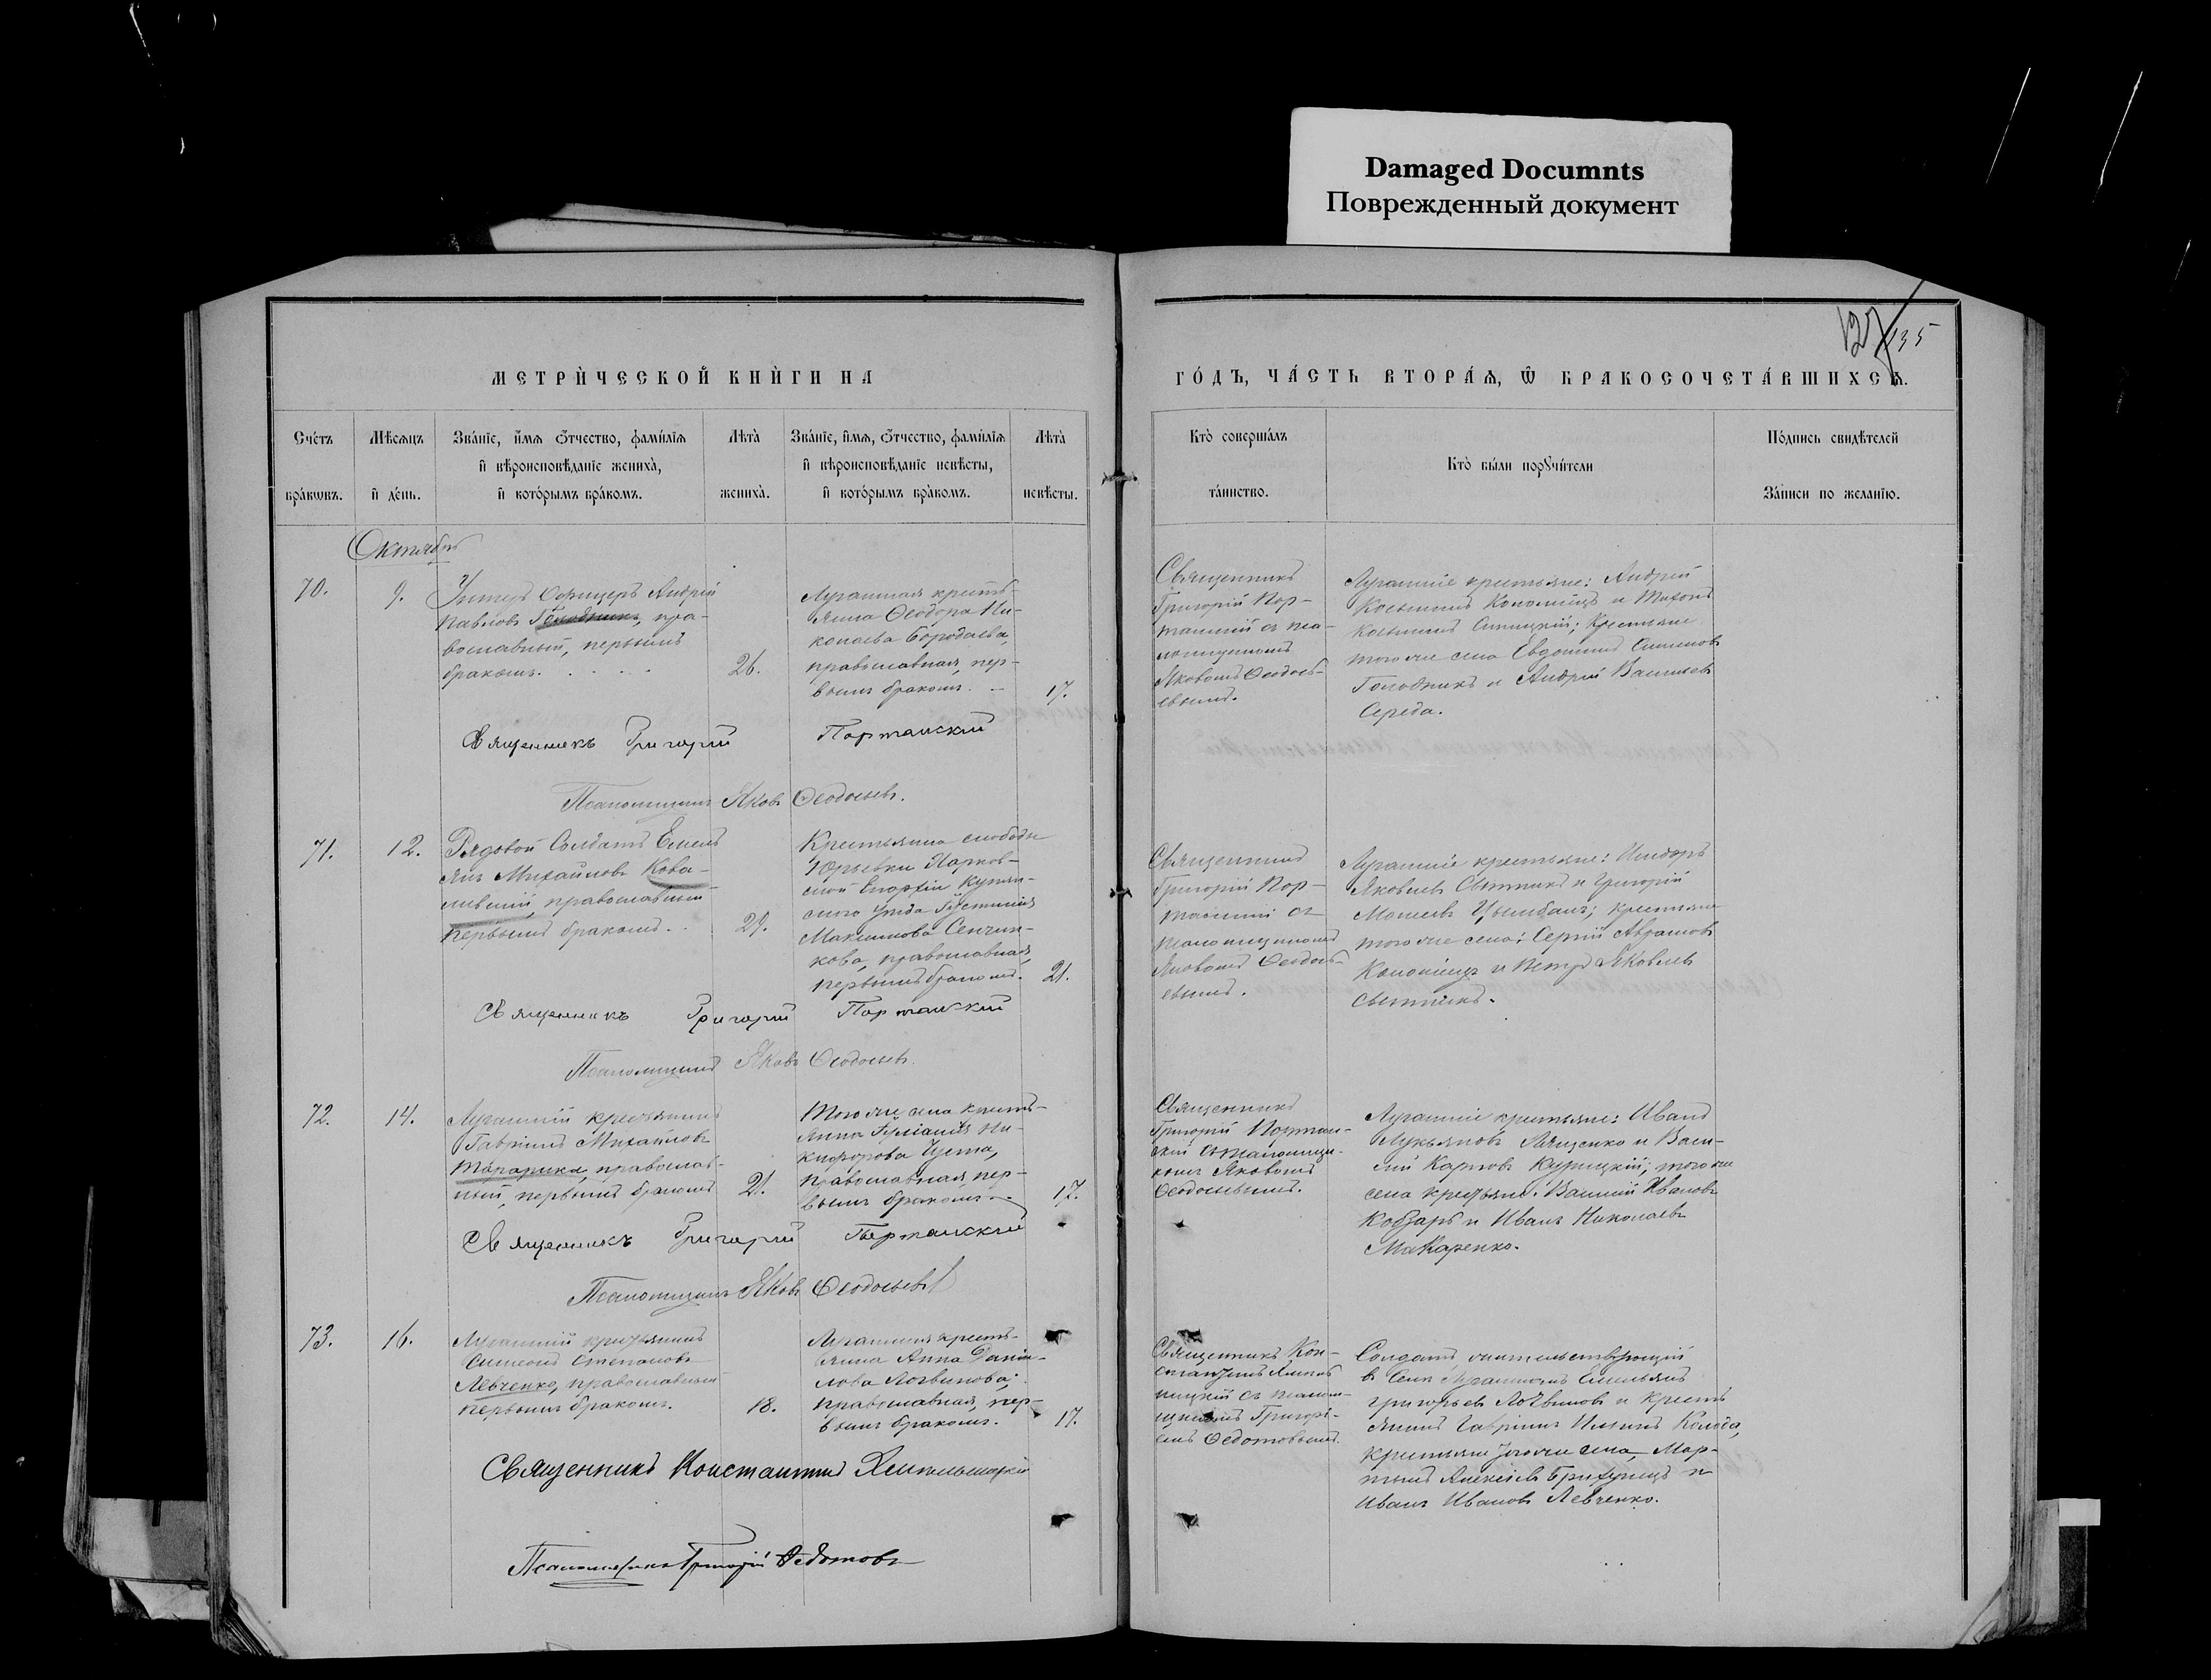 Damaged Documnts
Поврежденный документ
135
МЕТРИ́ЧЕСКОЙ КНИ́ГИ НА
ГО́ДЪ, ЧА́СТЬ ВТОРА́Я, Ѿ БРАКОСОЧЕТА́ВШИХСЯ.
Сче́тъ
бра́кѡвъ.
Мѣсяцъ
и҆ де́нь.
Зва́нїе, и҆́мя, ѻ҆́тчество, фами́лїя
и҆ вѣроисповѣ́данїе жениха̀,
и҆ кото́рымъ бра́комъ.
Лѣта̀
жениха̀.
Зва́нїе, и҆́мя, ѻ҆́тчество, фами́лїя
и҆ вѣроисповѣ́данїе невѣ́сты,
и҆ кото́рымъ бра́комъ.
Лѣта̀
невѣ́сты.
Кто̀ соверша́лъ
та́инство.
Кто̀ бы́ли порꙋчи́тели
По́дпись свидѣ́телей
За́писи по жела́нїю.
Октябрь
70.
9.
Унтеръ Офицеръ Андрій
Павловъ Голодникъ, пра-
вославный, первымъ
бракомъ.
26.
кресть-
янка Ѳеодора Ни-
колаева Бородаева,
православная, пер-
вымъ бракомъ.
17.
Священникъ
Григорій Пор-
Яковомъ Ѳеодось-
евымъ.
крестьяне: Андрей
Косьминъ Коломіецъ и Тихонъ
Косьминъ крестьяне
того же села Евдокимъ Симоновъ
Голодникъ и Андрей Васильевъ
Середа.
Священникъ Григорій Портанскій
Псаломщикъ Яковъ Ѳеодосьевъ.
71.
12.
Рядовой Солдатъ Емель
янъ Михайловъ Кова-
левскій, православный
первымъ бракомъ.
29.
Крестьянка слободы
Юрьевки Харков-
ской Епархіи Купян-
скаго уѣзда Іустинія
Максимова Сенчен-
кова, православная,
первымъ бракомъ.
21.
Священникъ
Григорій Пор-
Яковомъ Ѳеодось-
евымъ.
крестьяне: Исидоръ
Яковлевъ Сытникъ и Григорій
Моисеевъ Цымбалъ; крестьяне
того же села: Сергій Аврамовъ
Коломіецъ и Петръ Яковлевъ
Сытникъ.
Священникъ Григорій Портанскій
Псаломщикъ Яковъ Ѳеодосьевъ.
72.
14.
крестьянинъ
Гавріилъ Михайловъ
православ-
ный, первымъ бракомъ
21.
Того же села кресть-
янка Іуліанія Ни-
кифорова
православная, пер-
вымъ бракомъ
17.
Священникъ
Григорій Портан-
скій съ псаломщи-
комъ Яковомъ
Ѳеодосьевымъ.
крестьяне: Иванъ
Лукьяновъ Лященко и Васи-
лій Карповъ Курицкій; того же
села крестьяне: Василій Ивановъ
Кобзарь и Иванъ Николаевъ
Макаренко.
Священникъ Григорій Портанскій
Псаломщикъ Яковъ Ѳеодосьевъ
73.
16.
крестьянинъ
Симеонъ Степановъ
Левченко, православный
первымъ бракомъ.
18.
кресть-
янка Анна Дании-
лова Логвинова,
православная, пер-
вымъ бракомъ.
17.
Священникъ Кон-
стантинъ Ямполь-
щикомъ Григорі-
емъ Ѳедотовымъ.
Солдатъ, жительствующій
въ Селѣ Емельянъ
Григорьевъ Логвиновъ и кресть
янинъ Гавріилъ Колода,
крестьяне того же села, Мар-
тынъ Алексѣевъ и
Иванъ Ивановъ Левченко.
Священникъ Константинъ
Псаломщикъ Григорій Ѳедотовъ